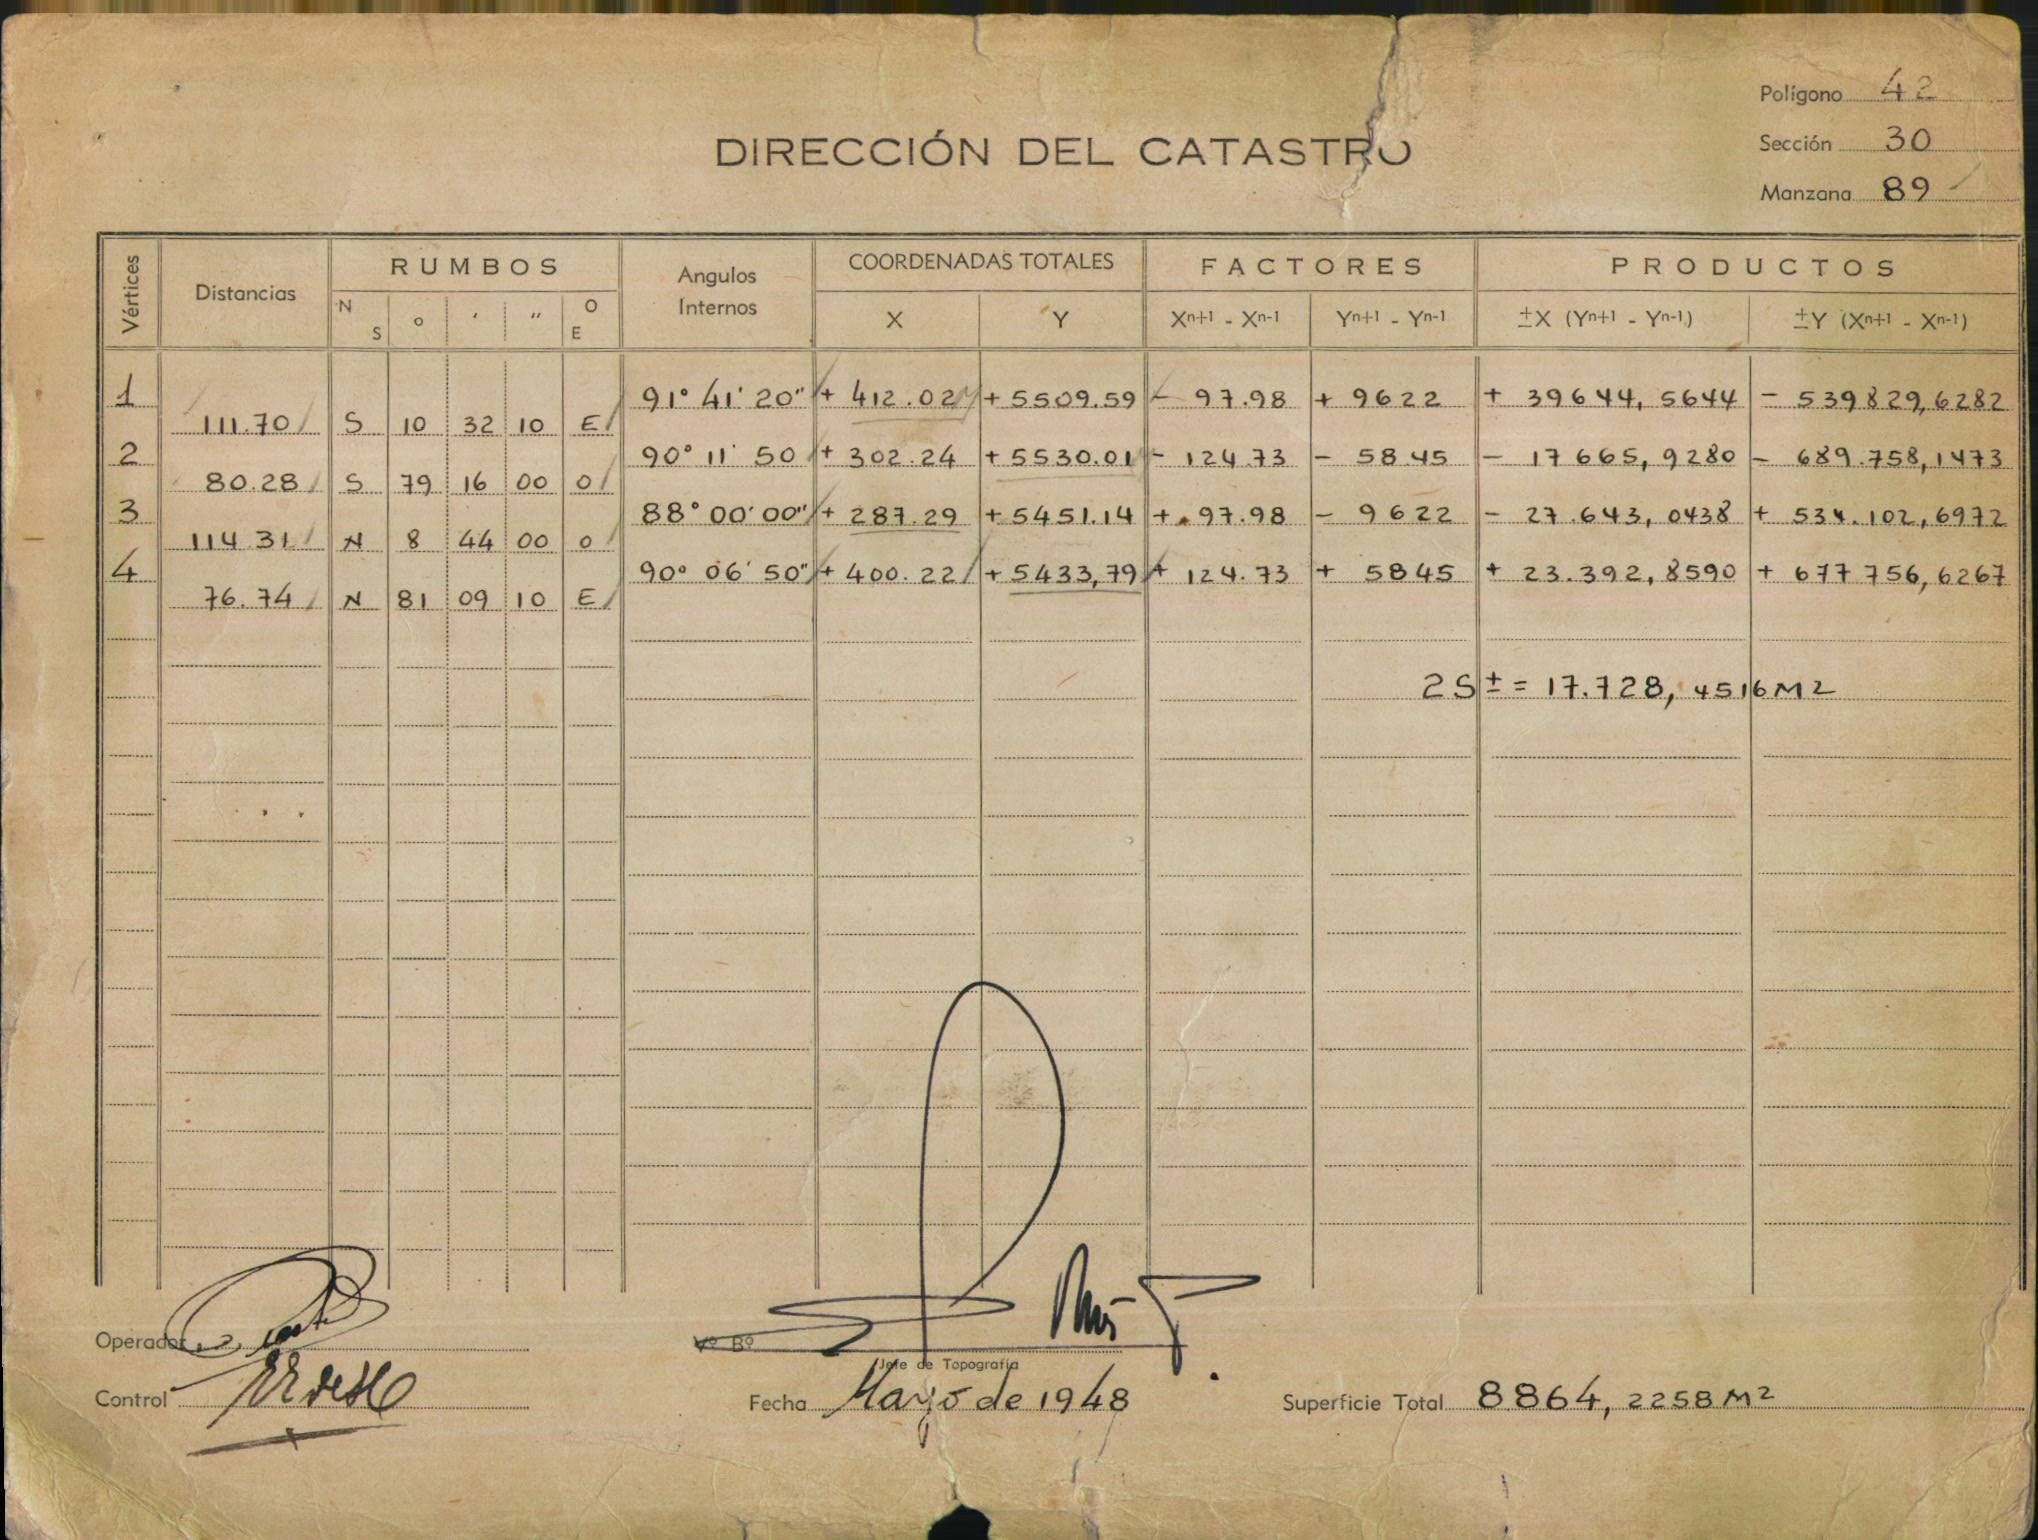 Polígono 42
DIRECCIÓN DEL CATASTRO
Sección 30
Manzana 89
Vértices Distancias RUMBOS Angulos Internos COORDENADAS TOTALES FACTORES PRODUCTOS
N S o ʹ ʺ O E X Y Xn+1 - Xn-1 Yn+1 - Yn-1 ±X (Yn+1 - Yn-1) ±Y (Xn+1 - Xn-1)
1 91° 41' 20" + 412.02 + 5509.59 - 97.98 + 9622 + 39644, 5644 - 539829,6282
111.70 S 10 32 10 E
2 90° 11' 50 + 302.24 + 5530.01 - 124.73 - 58.45 - 17665, 9280 - 689.758,1473
80.28 S 79 16 00 O
3 88° 00' 00" + 287.29 + 5451.14 + 97.98 - 9622 - 27.643, 0438 + 534.102,6972
114.31 N 8 44 00 O
4 90° 06' 50" + 400.22 + 5433,79 + 124.73 + 5845 + 23.392, 8590 + 677756,6267
76.74 N 81 09 10 E
2S ± = 17.728, 4516 M2
Operador
Vº Bº
Jefe de Topografía
Control
Fecha Mayo de 1948
Superficie Total 8864, 2258 M2